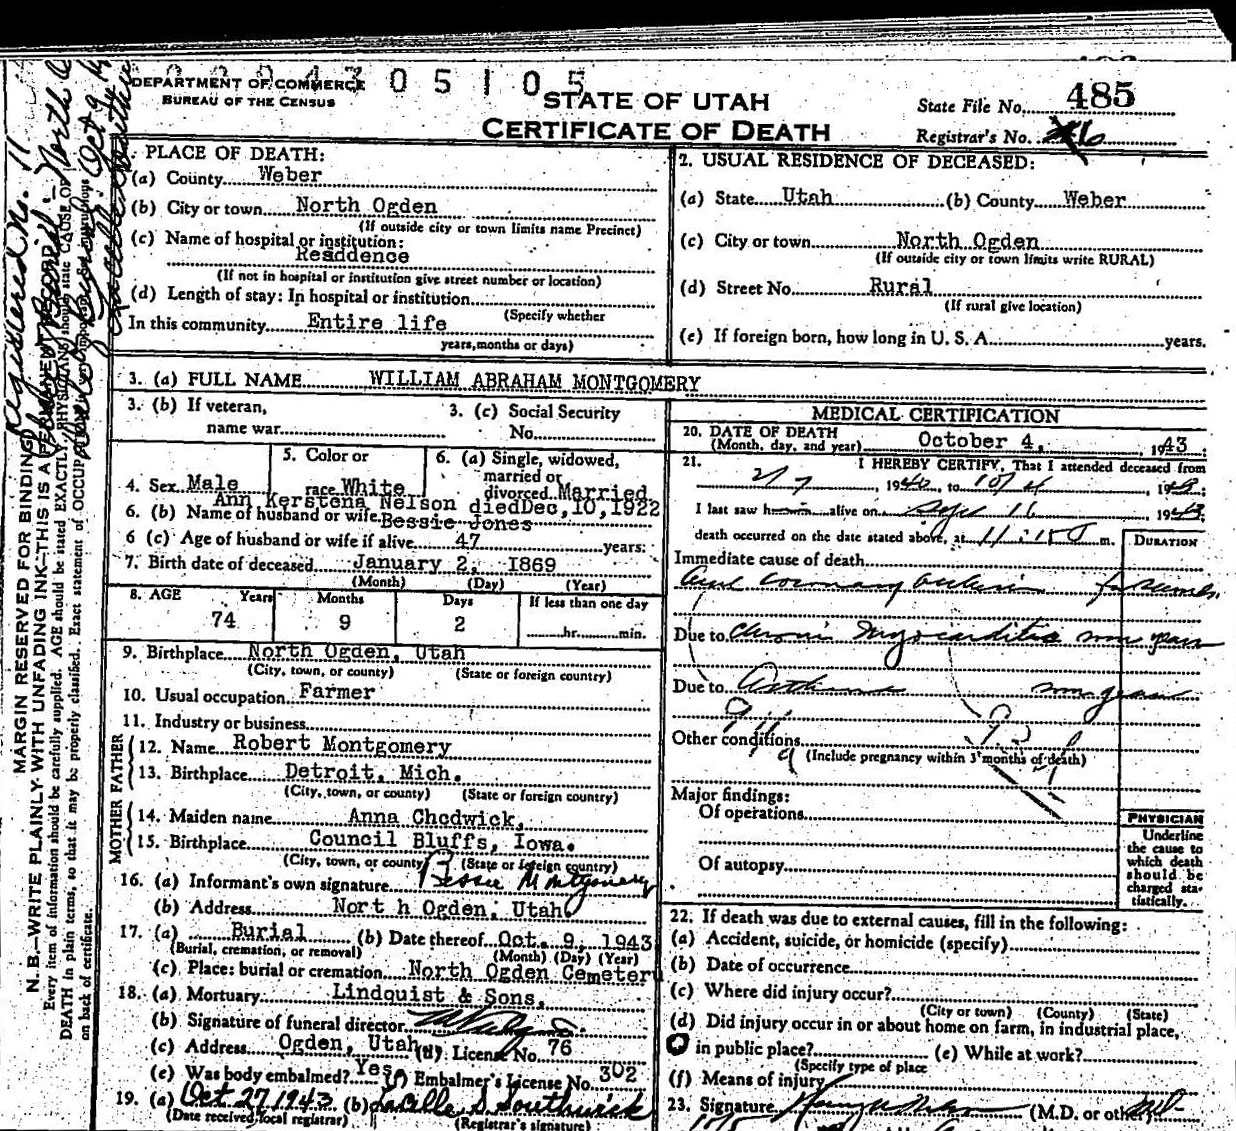 DEPARTMENT OF COMMERCE
BUREAU OF THE CENSUS
0 5 1 0 5
STATE OF UTAH
CERTIFICATE OF DEATH
State File No. 485
Registrar's No.
PLACE OF DEATH:
(a) County Weber
(b) City or town North Ogden
(If outside city or town limits name Precinct)
(c) Name of hospital or institution:
Resddence
(If not in hospital or institution give street number or location)
(d) Length of stay: In hospital or institution
(Specify whether
In this community Entire life
years, months or days)
2. USUAL RESIDENCE OF DECEASED:
(a) State Utah (b) County Weber
(c) City or town North Ogden
(If outside city or town limits write RURAL)
(d) Street No. Rural
(If rural give location)
(e) If foreign born, how long in U. S. A. years.
3. (a) FULL NAME WILLIAM ABRAHAM MONTGOMERY
3. (b) If veteran,
name war
3. (c) Social Security
No.
4. Sex Male
5. Color or
race White
6. (a) Single, widowed,
married or
divorced Married
Ann Kerstena Nelson diedDec,10,1922
6. (b) Name of husband or wife Bessie Jones
6 (c) Age of husband or wife if alive 47 years:
7. Birth date of deceased January 2, 1869
(Month) (Day) (Year)
8. AGE Years Months Days If less than one day
74 9 2 hr. min.
9. Birthplace North Ogden, Utah
(City, town, or county) (State or foreign country)
10. Usual occupation Farmer
11. Industry or business
FATHER
12. Name Robert Montgomery
13. Birthplace Detroit, Mich.
(City, town, or county) (State or foreign country)
MOTHER
14. Maiden name Anna Chedwick,
15. Birthplace Council Bluffs, Iowa.
(City, town, or county (State or foreign country)
16. (a) Informant's own signature Bessie Montgomery
(b) Address Nort h Ogden, Utah
17. (a) Burial (b) Date thereof Oct. 9, 1943
(Burial, cremation, or removal) (Month) (Day) (Year)
(c) Place: burial or cremation North Ogden Cemetery
18. (a) Mortuary Lindquist & Sons.
(b) Signature of funeral director
(c) Address Ogden, Utah (d) License No. 76
(e) Was body embalmed? Yes (f) Embalmer's License No. 302
19. (a) Oct 27 1943 (b) LaCelle S. Southwick
(Date received local registrar) (Registrar's signature)
MEDICAL CERTIFICATION
20. DATE OF DEATH
(Month, day, and year) October 4, 1943
21. I HEREBY CERTIFY, That I attended deceased from
, 1940, to 10/4 1943;
I last saw him alive on Sept 16 1943;
death occurred on the date stated above, at 11:15 m.
DURATION
Immediate cause of death
Coronary
Due to Chronic Myocarditis
Due to Asthma
Other conditions
(Include pregnancy within 3 months of death)
Major findings:
Of operations
Of autopsy
PHYSICIAN
Underline
the cause to
which death
should be
charged sta-
tistically.
22. If death was due to external causes, fill in the following:
(a) Accident, suicide, or homicide (specify)
(b) Date of occurrence
(c) Where did injury occur?
(City or town) (County) (State)
(d) Did injury occur in or about home on farm, in industrial place,
in public place? (e) While at work?
(Specify type of place
(f) Means of injury
23. Signature (M.D. or other)
MARGIN RESERVED FOR BINDING
N. B.—WRITE PLAINLY WITH UNFADING INK—THIS IS A PERMANENT RECORD
Every item of information should be carefully supplied. AGE should be stated EXACTLY. PHYSICIANS should state CAUSE OF
DEATH in plain terms, so that it may be properly classified. Exact statement of OCCUPATION
on back of certificate.
Registered No. 11